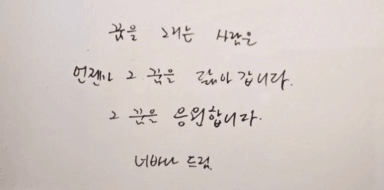 꿈을 그리는 사람은
언젠가 그 꿈을 닮아 갑니다.
그 꿈을 응원합니다.
너바나 드림.